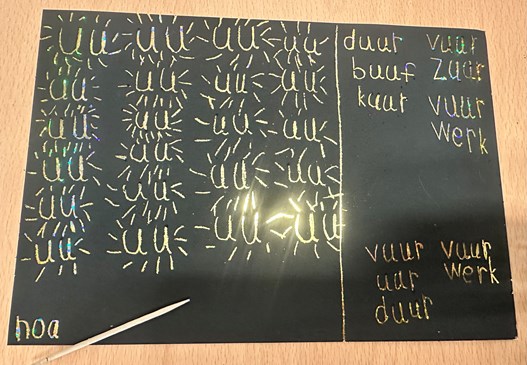 uu uu uu uu
uu uu uu uu
uu uu uu uu
uu uu uu uu
uu uu uu uu
uu uu
noa
duur
buur
kuur
vuur
zuur
vuur
werk
vuur
uur
duur
vuur
werk